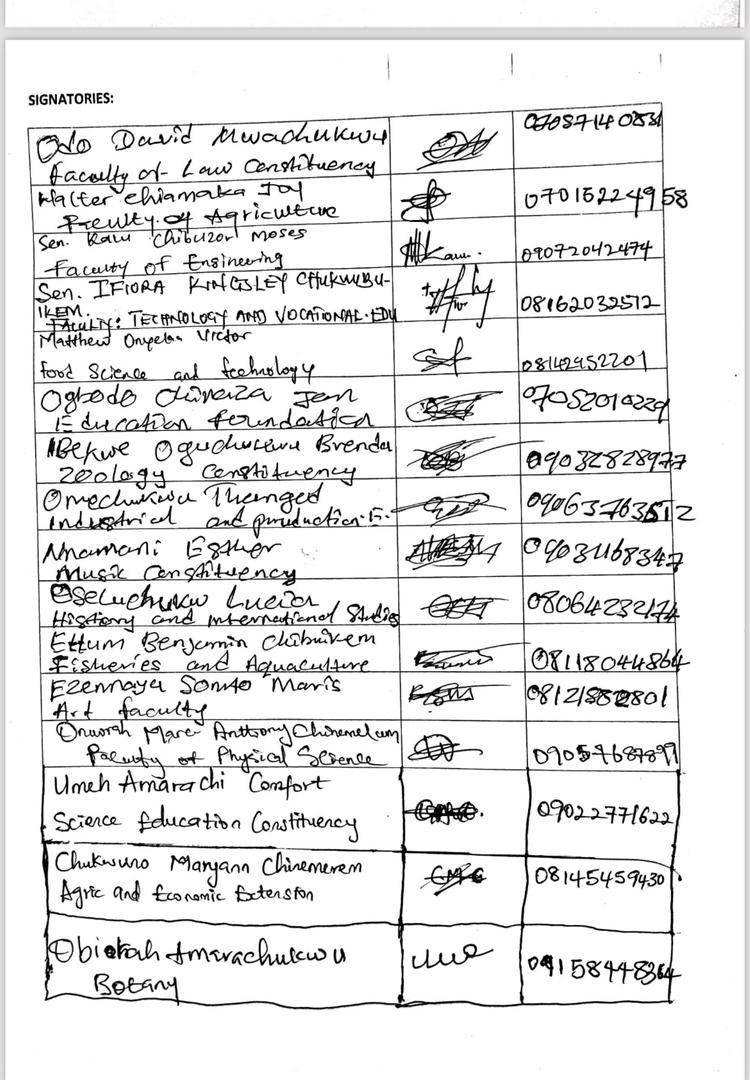 SIGNATORIES:
Odo David Nwachukwu
Faculty of Law Constituency
07087140831
Walter Chiamaka Joy
Faculty of Agriculture
07015224958
Sen. Kalu Chibuzor Moses
Faculty of Engineering
09072042474
Sen. IFIORA KINGSLEY CHUKWUBU-
IKEM.
FACULTY: TECHNOLOGY AND VOCATIONAL-EDU
08162032512
Matthew Onyeka Victor
Food Science and technology
08142952201
Ogbodo Chineza Jen
Education foundation
07052010229
IBekwe Oguchukwu Brenda
Zoology constituency
09032828977
Omechukwu Thanged
Industrial and production E.
09063763512
Nnamani Esther
Music Constituency
09031168347
Oseluchukwu Lucia
History and International Studies
08064232174
Ettum Benjamin Chibuikem
Fisheries and Aquaculture
08118044864
Ezennaya Somto Maris
Art faculty
Onuorah Marc Anthony Chinemelum
Faculty of Physical Science
Umeh Amarachi Comfort
Science Education Constituency
09022771622
Chukwuno Maryann Chinemerem
Agric and Economic Extension
CMC
08145459430
Obiorah Amarachukwu
Botany
09158448364